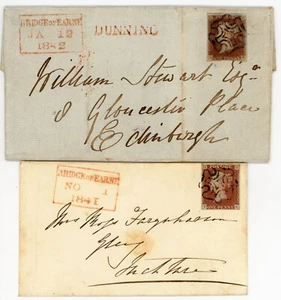 BRIDGE OF EARNE
JA 12
1842
DUNNING
William Stewart Esqr
8 Gloucester Place
Edinburgh
BRIDGE OF EARNE
NO 1
1841
ONE PENNY
Mrs
Inchture